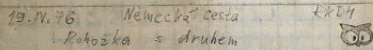 19.IV.76 Německá cesta
Rohožka s druhem